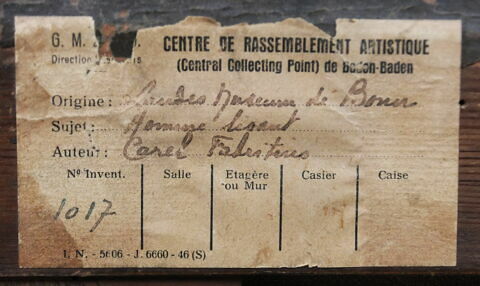 G. M. CENTRE DE RASSEMBLEMENT ARTISTIQUE
Direction (Central Collecting Point) de Baden-Baden
Origine : Landes Museum de Bonn
Sujet : Homme lisant
Auteur : Carel Fabritius
No Invent. Salle Etagère ou Mur Casier Caise
1017
I. N. - 5606 - J. 6660 - 46 (S)